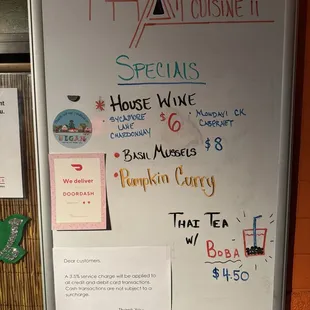 THAI CUISINE II
SPECIALS
* HOUSE WINE
• SYCAMORE LANE CHARDONNAY
$6
• MONDAVI CK CABERNET
$8
• BASIL MUSSELS
• Pumpkin Curry
We deliver
DOORDASH
THAI TEA
W/ BOBA
$4.50
Dear customers,
A 3.5% service charge will be applied to
all credit and debit card transactions.
Cash transactions are not subject to a
surcharge.